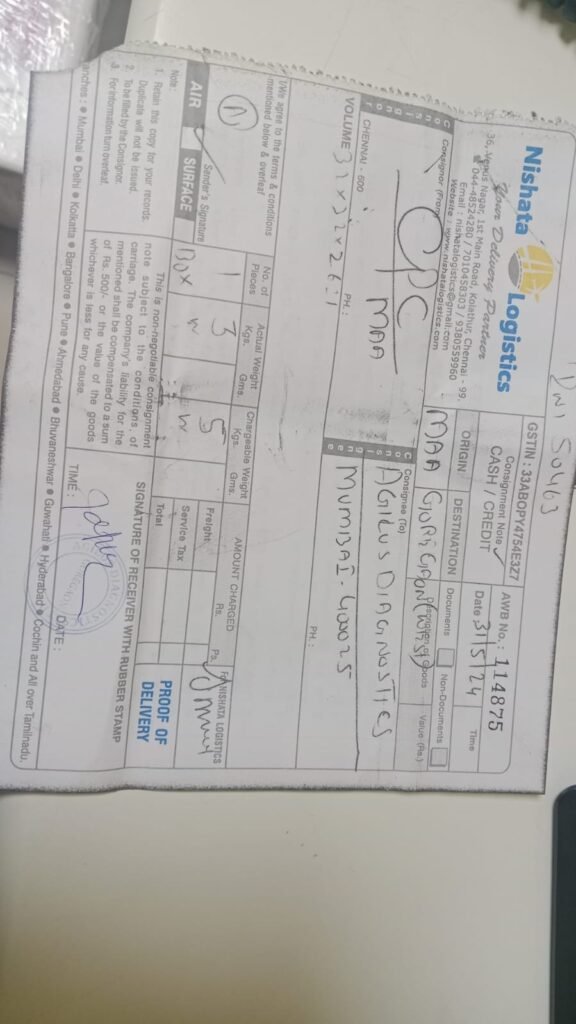 DWI 50463
Nishata Logistics
Your Delivery Partner
36, Venus Nagar, 1st Main Road, Kolathur, Chennai - 99.
044-48524280 / 7010458303 / 9380559960
Email : nishatalogistics@gmail.com
Website : www.nishatalogistics.com
GSTIN : 33ABOPY4754E3Z7
Consignment Note
CASH / CREDIT
AWB No.: 114875
Date 31/5/24
Time
ORIGIN
DESTINATION
Documents
Non-Documents
MAA
Description of Goods
Value (Rs.)
Consignor (From)
CPC
MAA
CHENNAI - 600
PH.:
VOLUME
Consignee (To)
AGILUS DIAGNOSTICS
MUMBAI - 400025
PH.:
I/We agree to the terms & conditions
mentioned below & overleaf
Sender's Signature
No. of Pieces
Actual Weight
Kgs. Gms.
Chargeable Weight
Kgs. Gms.
AMOUNT CHARGED
Rs. Ps.
1
3
5
Freight
Service Tax
Total
For NISHATA LOGISTICS
AIR
SURFACE
BOX
Note:
1. Retain this copy for your records.
Duplicate will not be issued.
2. To be filled by the Consignor.
3. For information turn overleaf.
This is non-negotiable consignment
note subject to the conditions of
carriage. The company's liability for the
mentioned shall be compensated to a sum
of Rs. 500/- or the value of the goods
whichever is less for any cause.
SIGNATURE OF RECEIVER WITH RUBBER STAMP
PROOF OF
DELIVERY
TIME :
DATE :
anches : ● Mumbai ● Delhi ● Kolkatta ● Bangalore ● Pune ● Ahmedabad ● Bhuvaneshwar ● Guwahati ● Hyderabad ● Cochin and All over Tamilnadu.